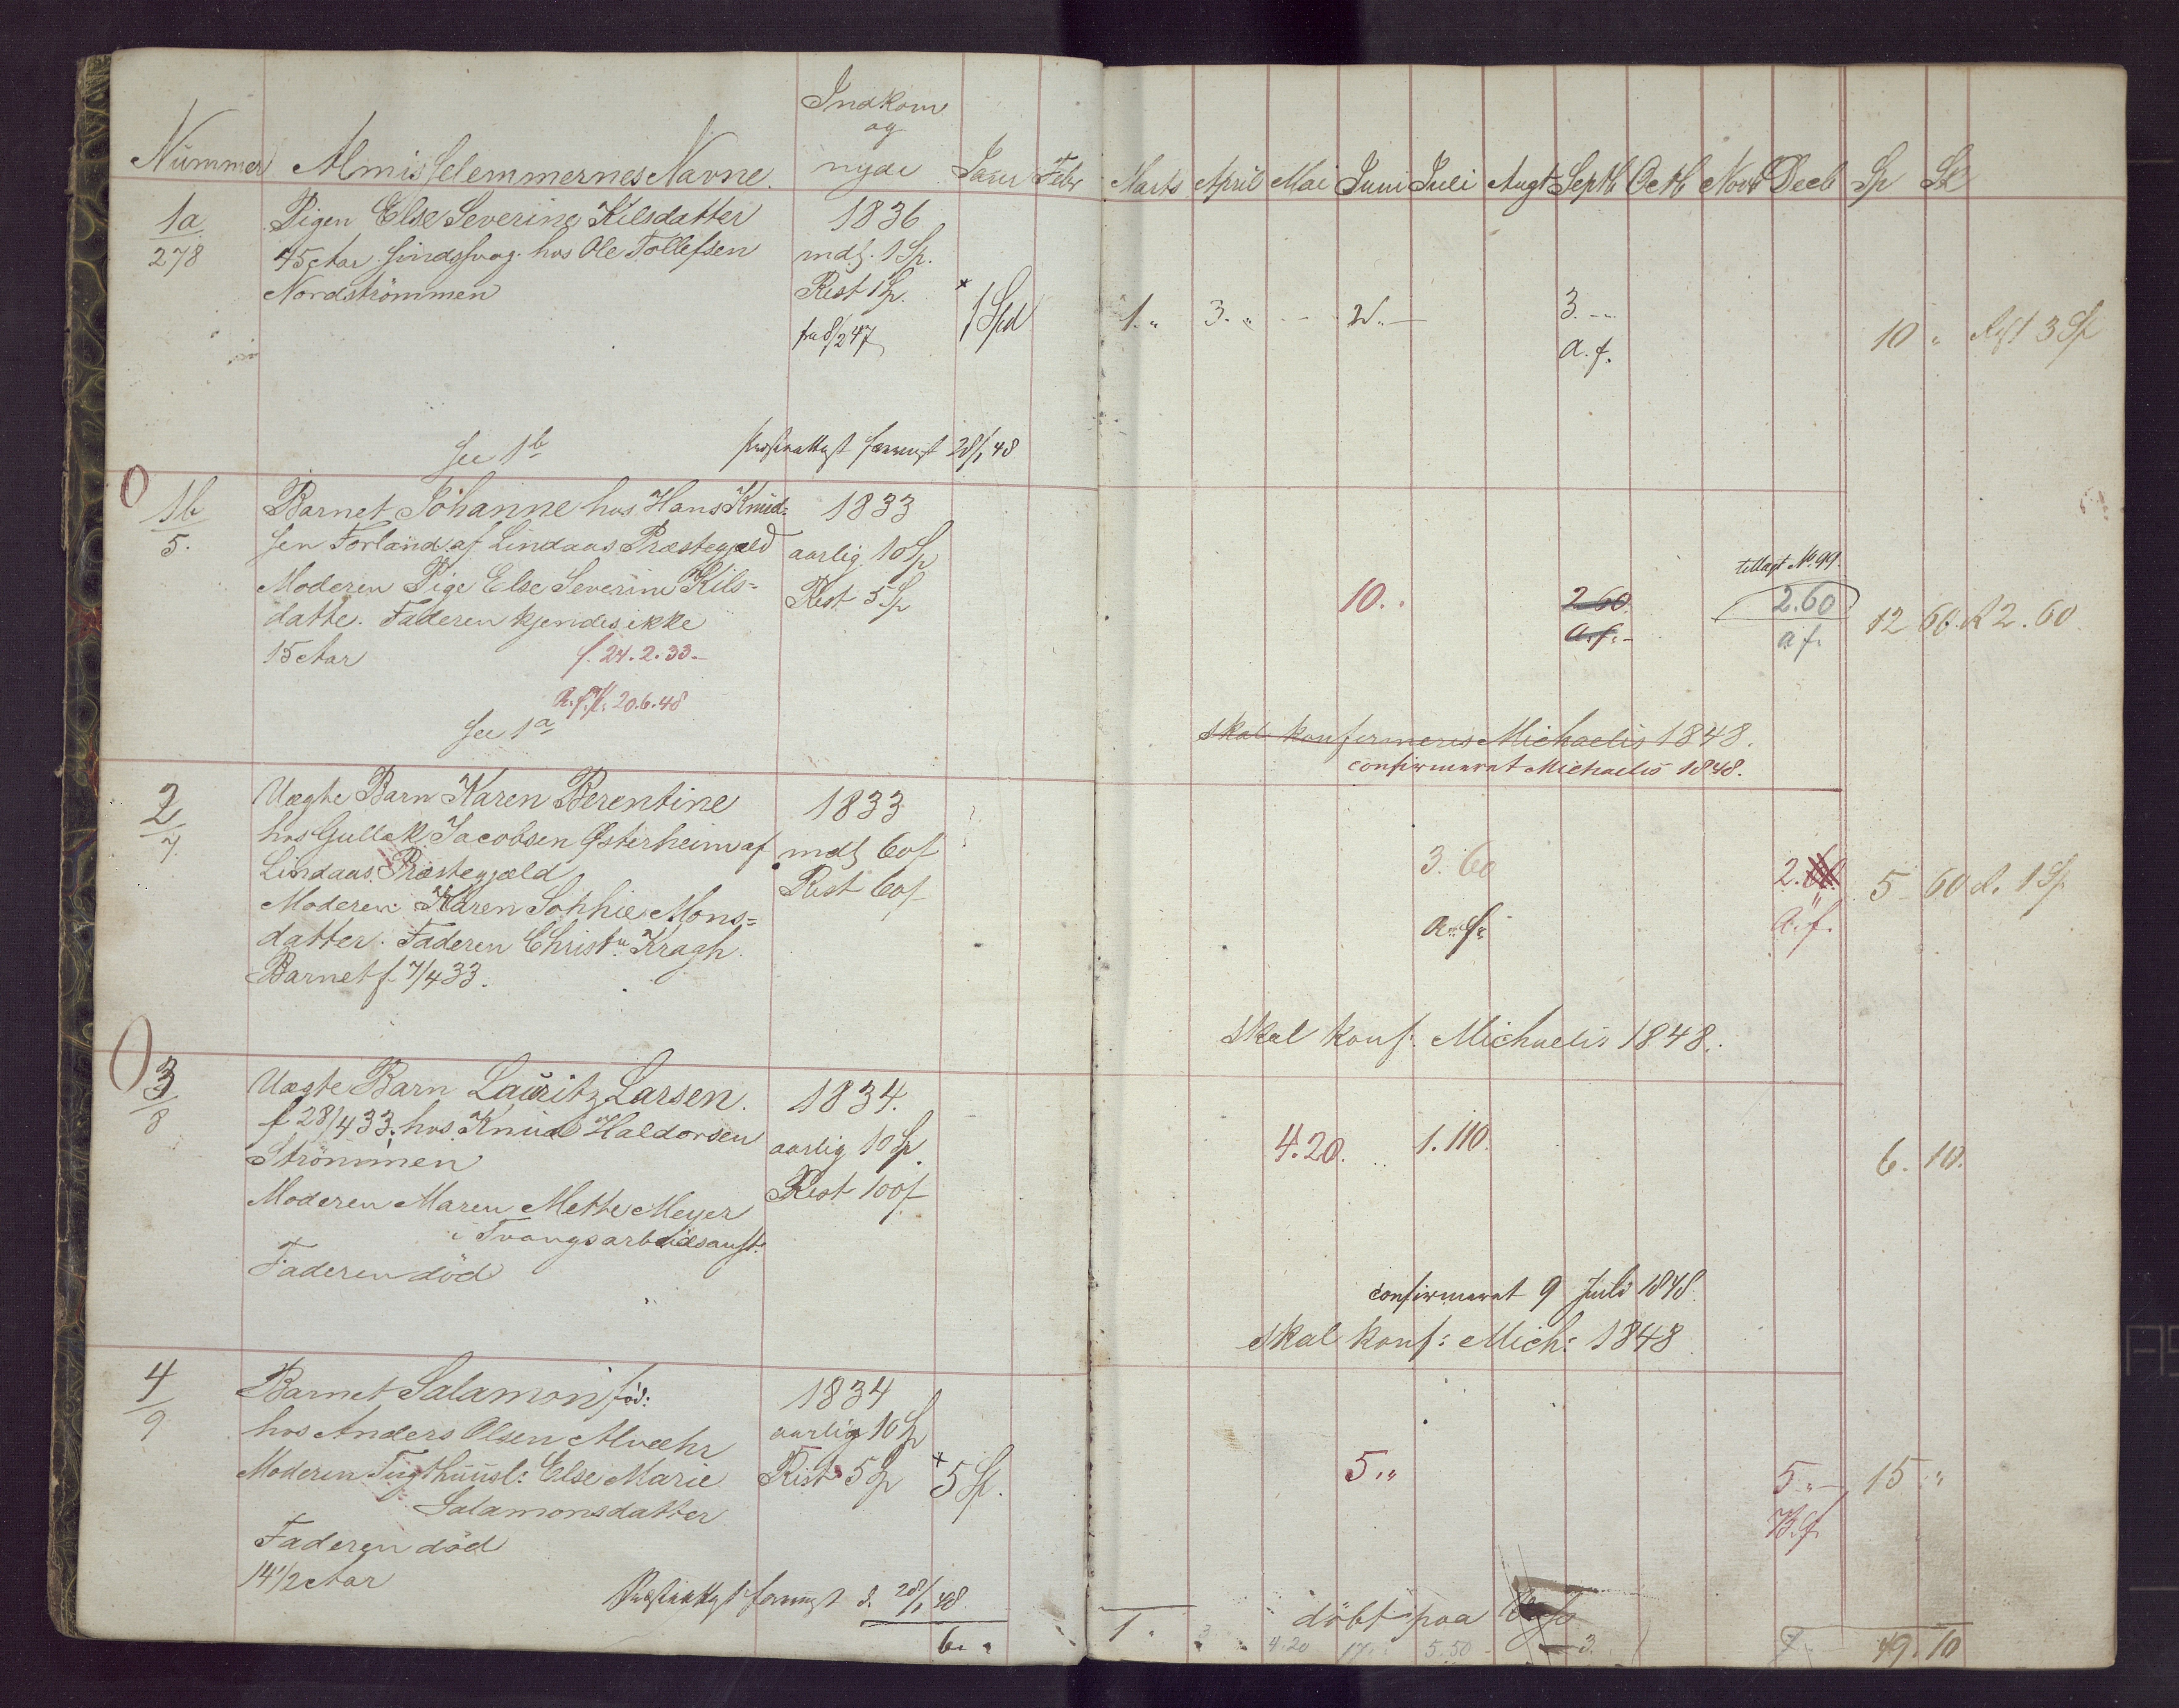 Indkom
og
Nummer Almisselemmernes Navne. nyde Janr Febr Marts April Mai Juni Juli Augt Septb Octb Novb Decb Sp Sk
1a Pigen Else Severine Kilsdatter 1836
278 45 Aar hos Ole Tollefsen mdl. 1 Sp.
Nordströmmen Rest 1 Sp. 1 Spd 1. " 3. " 2. " 3. -
a. f. 10 " Rest 3 Sp
fra 8/2 47
see 1b 28/1 48
1b Barnet Johanne hos Hans Knud- 1833
5. sen Forland af Lindaas Præstegjæld aarlig 10 Sp tillagt No. 99.
Moderen Pige Else Severine Kils- Rest 5 Sp 10. " 2.60 2.60 12 60. R 2.60
datte. Faderen kjendes ikke a. f. - a f.
15 Aar f. 24. 2. 33.
20. 6. 48
see 1a skal konfirmeres Michaelis 1848.
confirmeret Michaelis 1848.
2 Uægte Barn Karen Berentine 1833
7. hos Gullak Jacobsen Østerheim af mdl 60 f 3. 60 2. 60 5 - 60 R. 1 Sp
Lindaas Præstegjæld Rest 60 f
Moderen Karen Sophie Mons- a. f. a. f.
datter. Faderen Christn. Kragh.
Barnet f. 7/4 33.
skal konf. Michaelis 1848.
3 Uægte Barn Lauritz Larsen. 1834.
8 f 28/4 33. hos Knud Haldorsen aarlig 10 Sp. 4. 20. 1. 110. 6. 10.
Strömmen Rest 100 f
Moderen Maren Mette Meyer
i Tvangsarbeidsanst.
Faderen död
confirmeret 9 Juli 1848.
skal konf: Mich: 1848
4 Barnet Salamon föd: 1834
9 hos Anders Olsen Alvæhr aarlig 10 Sp
Moderen Tugthuusl: Else Marie Rest 5 Sp 5 Sp. 5. " 5. " 15 "
Salamonsdatter
Faderen död
14 1/2 Aar
d. 28/1 48.
döbt paa
6. " 1. " 3 " 4.20 17. " 5.50 - 3. 7. " 49. 10